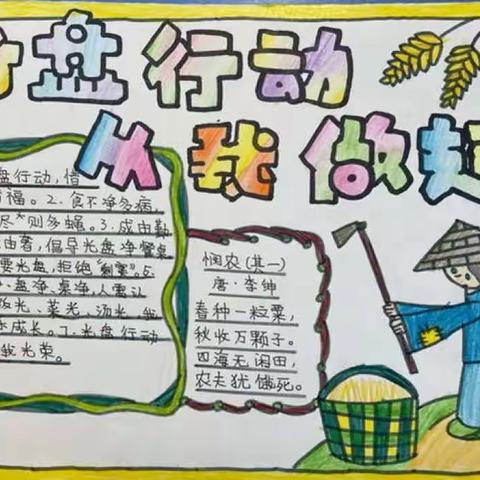 盘行动
从我做起
盘行动,惜
福。2.食不净多病,
尽则多蝇。3.成由勤
由奢,倡导光盘净餐桌
要光盘,拒绝"剩宴"。5.
盘净、桌净,人需让
饭光、菜光、汤光,我
成长。7.光盘行动
我光荣。
悯农(其一)
唐·李绅
春种一粒粟,
秋收万颗子。
四海无闲田,
农夫犹饿死。